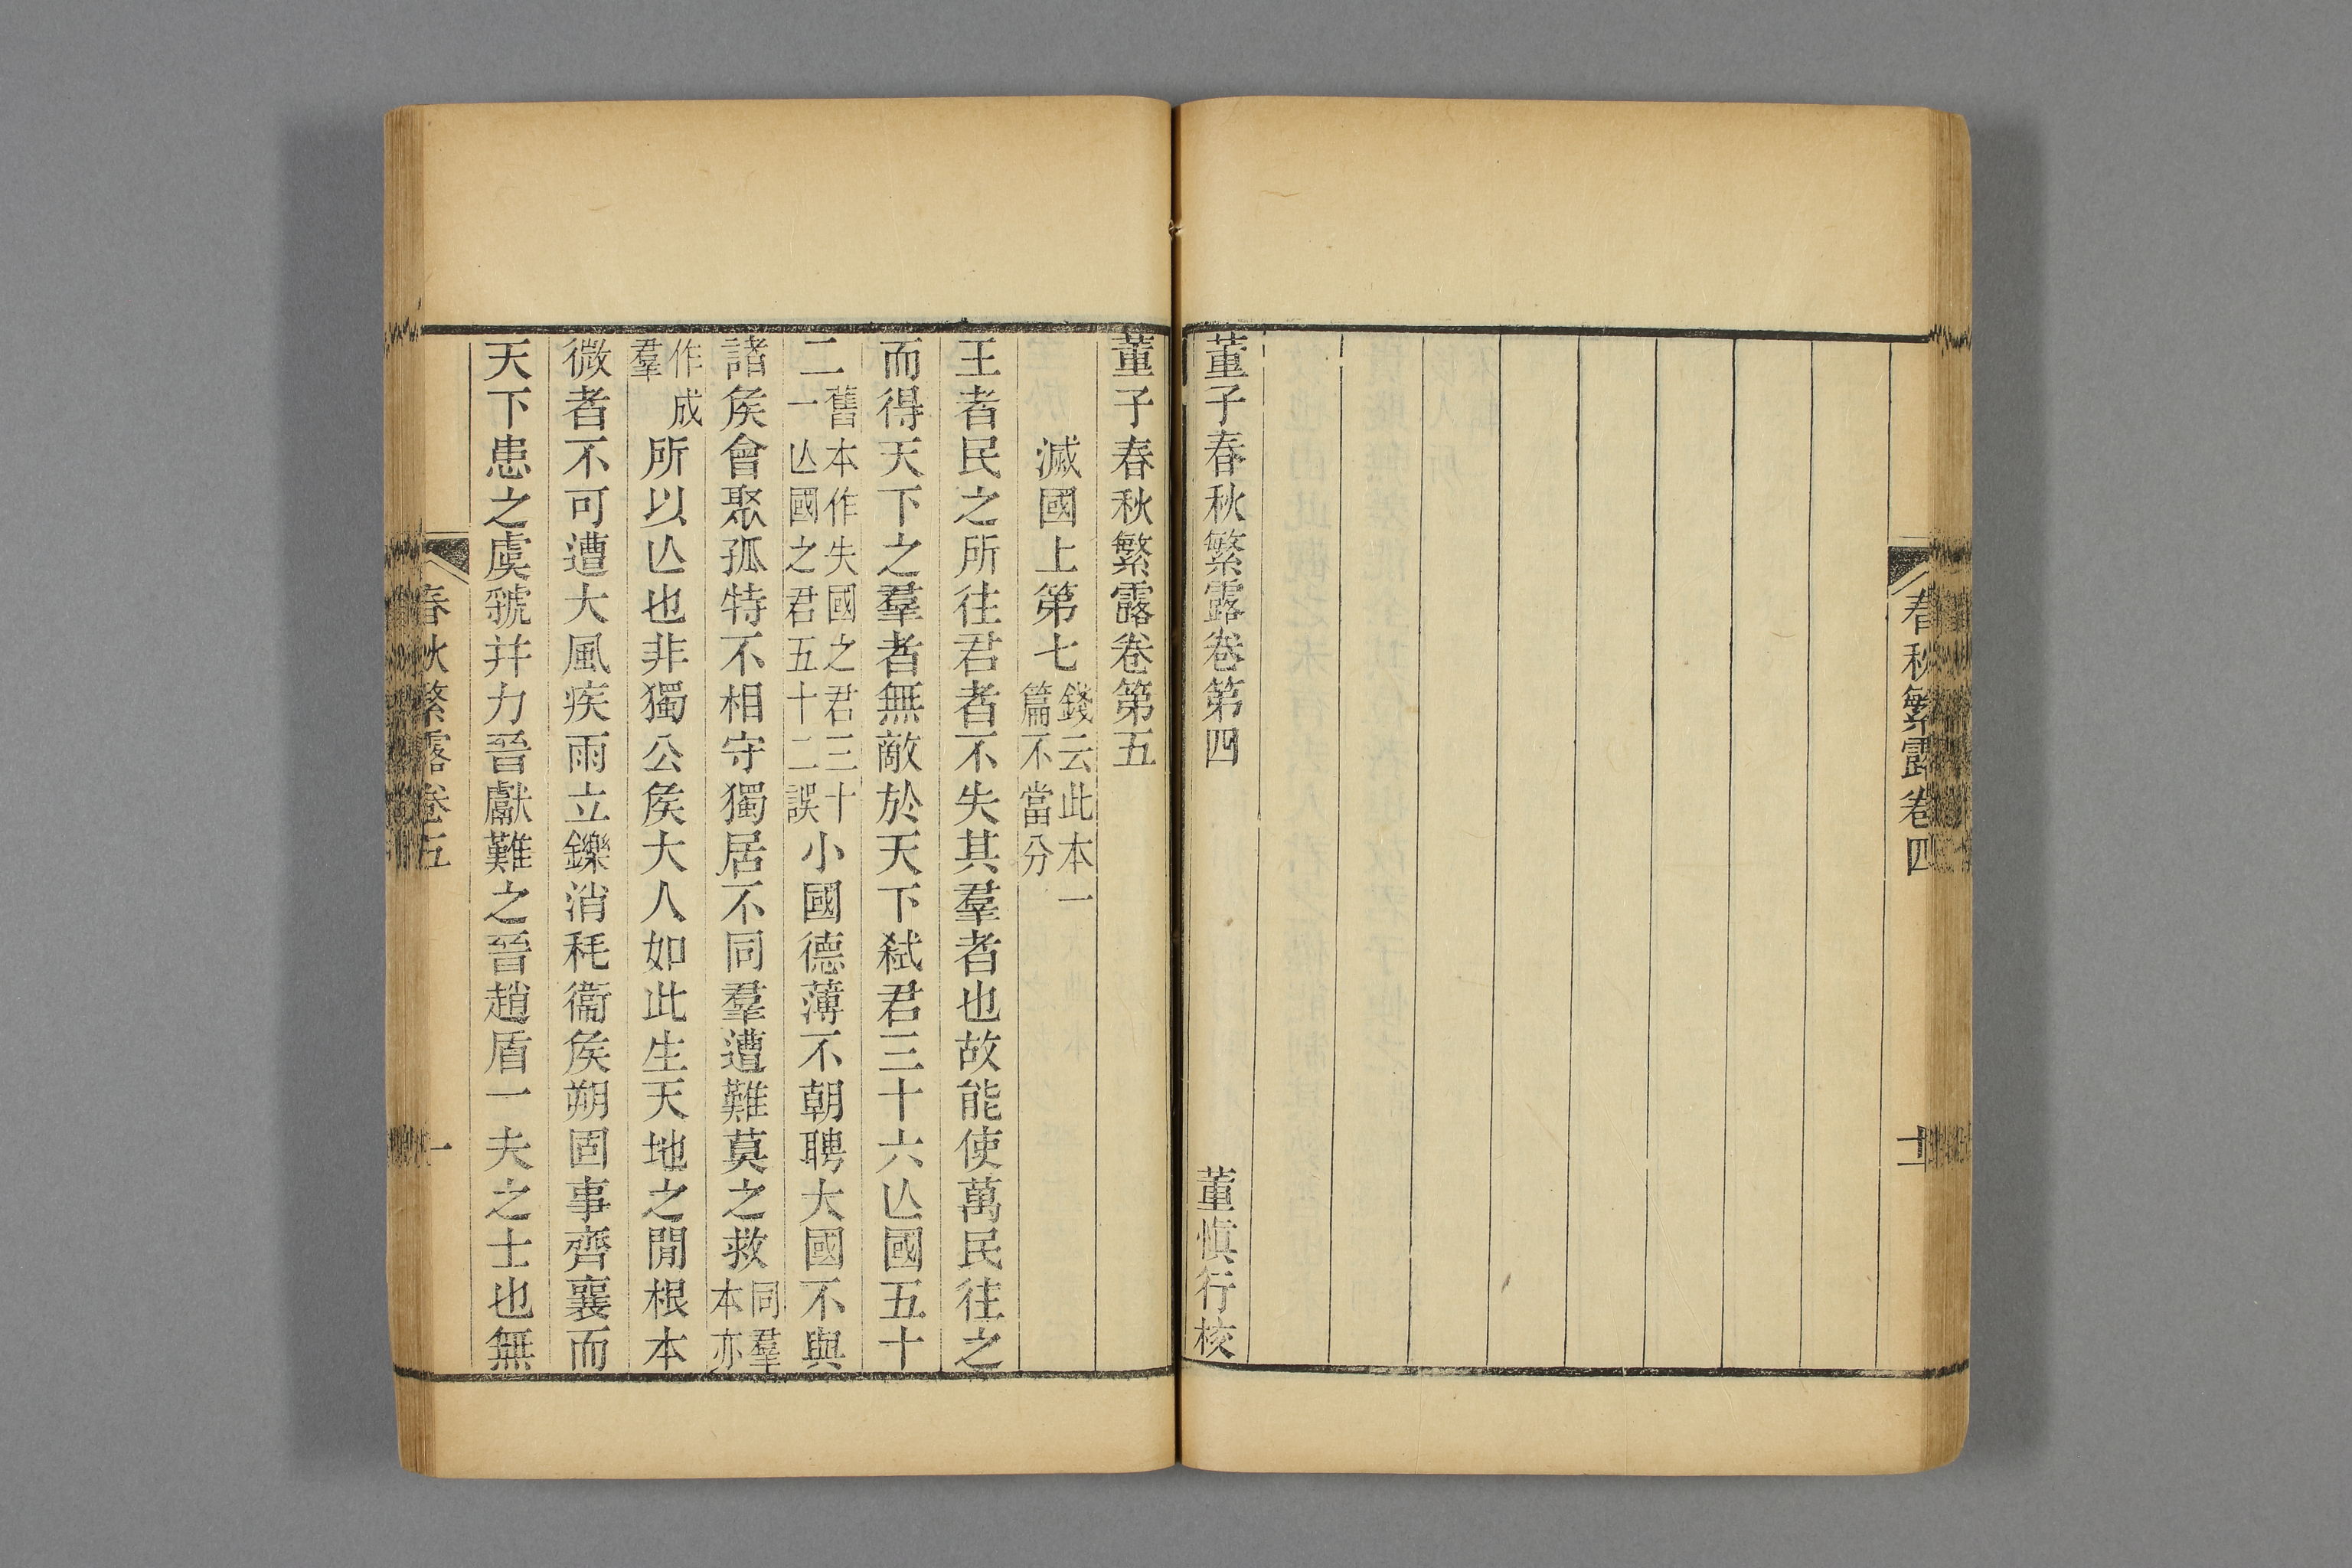 春秋繁露卷四
十二
董子春秋繁露卷第四　董慎行校
董子春秋繁露卷第五
滅國上第七 錢云此本一篇不當分
王者民之所往君者不失其羣者也故能使萬民往之
而得天下之羣者無敵於天下弑君三十六亾國五十
二 舊本作失國之君三十一亾國之君五十二誤 小國德薄不朝聘大國不與
諸矦會聚孤特不相守獨居不同羣遭難莫之救 同羣本亦
作成羣 所以亾也非獨公矦大人如此生天地之閒根本
微者不可遭大風疾雨立鑠消秏衞矦朔固事齊襄而
天下患之虞虢并力晉獻難之晉趙盾一夫之士也無
春秋繁露卷五
一